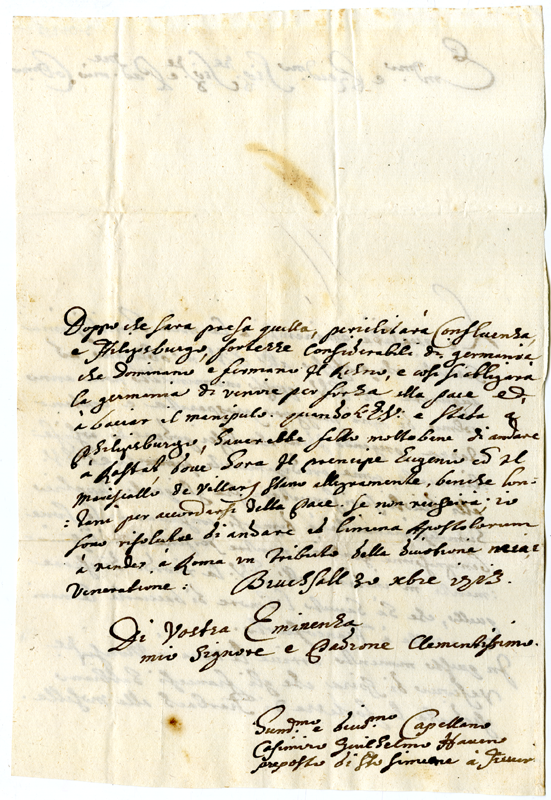 Doppo che sara presa quella, periclitarà Confluenza,
e Filipsburgo, fortezze considerabili di germania
che dominano e fermano il Rheno, e cosi si allegarà
la germania di venire per forza alla pace ed
à baciar il manipulo. quando V.E. è stata
Philipsburgo, haverebbe fatto molto bene di andare
à Rastat, dove hora il principe Eugenio ed il
Mariscallo de Villars stano allegramente, benche lon-
=tani per accordarsi della Pace. se non riuscirà: io
sono risoluto di andare ad limina Apostolorum
à render à Roma un tributo della divotione
Veneratione: Bruchsall 30 xbre 1713.
Di Vostra Eminenza,
mio Signore e Padrone Clementissimo.
e Capellano
Casimiro Guilhelmo
preposto di Sto Simeone à Trever